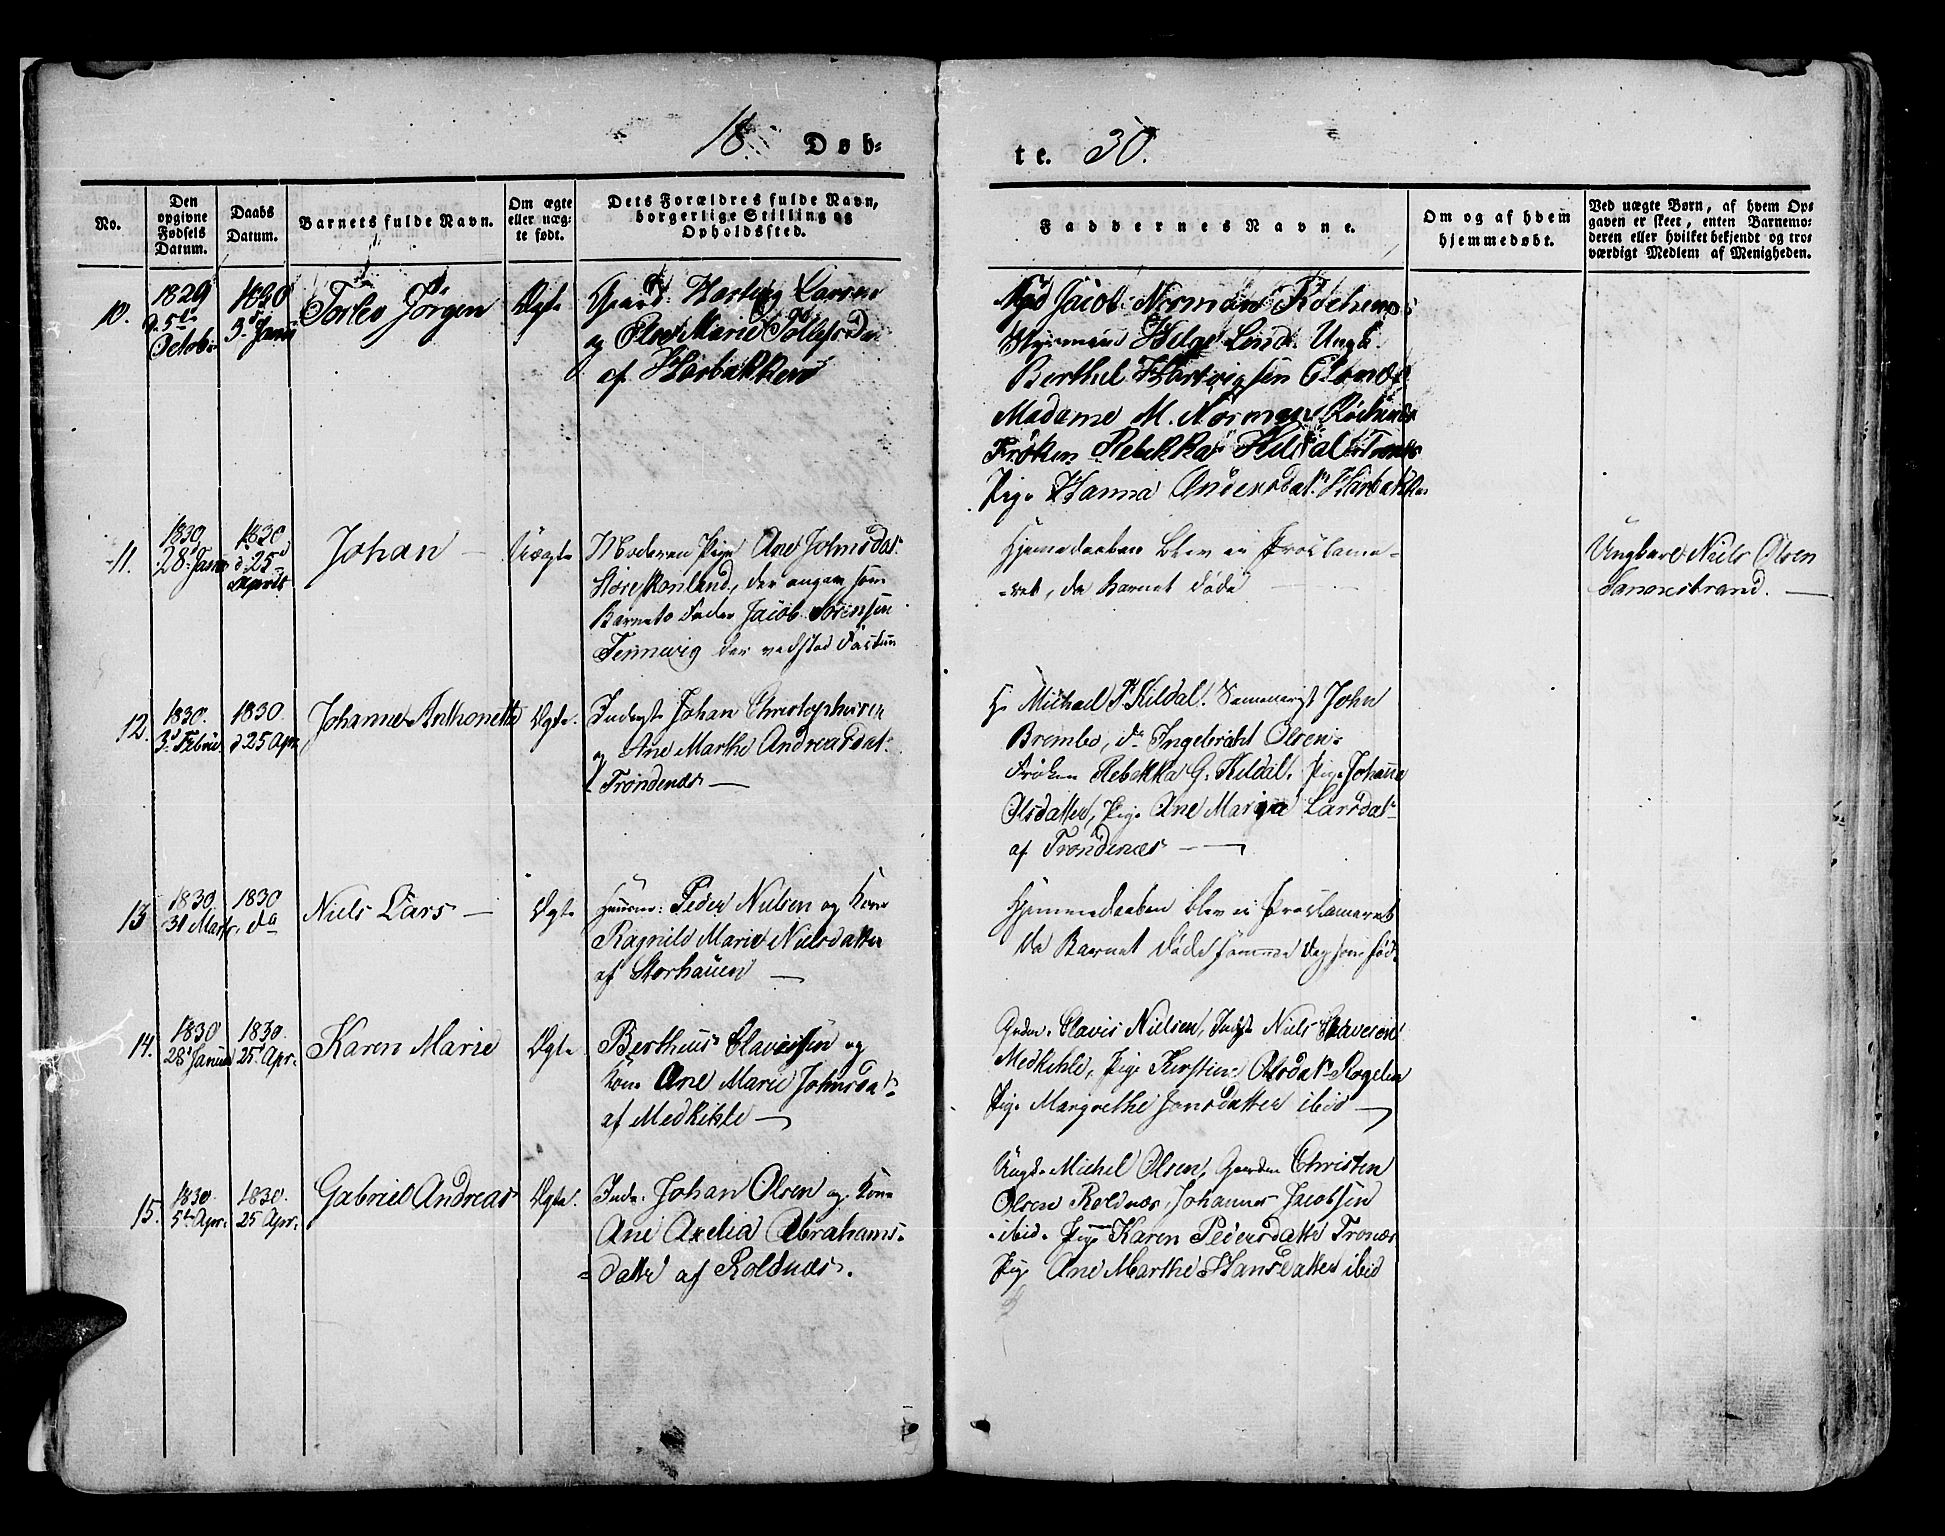 18 Døb-
te. 30.
No.
Den opgivne Fødsels Datum.
Daabs Datum.
Barnets fulde Navn.
Om ægte eller uæg- te født.
Dets Forældres fulde Navn, borgerlige Stilling og Opholdssted.
Faddernes Navne.
Om og af hvem hjemmedøbt.
Ved uægte Børn, af hvem Op- gaven er skeet, enten Barnemo- deren eller hvilket bekjendt og tro- værdigt Medlem af Menigheden.
10.
1829
d. 5te
Octob.
1830
3. Janu
Jørgen
Ægte
Gaard. Hartvig Larsen
og Marie
af Harbakken
Jacob Norman Röekenes
Styrmand Helge Lind. Ungk.
Berthel Hartvigsen
Madame M. Norman
Frøken Rebekka Kildal
Pige Hanna Andersdat. Harbakken
11.
1830
28. Janu
1830
d. 25
April
Johan
Uægte
Moderen Pige Ane Johnsdat.
der angav som
Barnets Fader Jacob Sørensen
Tennevig der
Hjemedaaben blev ei Proclame-
-ret, da Barnet døde
Ungkarl Niels Olsen
Sannestrand.
12.
1830.
3d Febru
1830.
d 25 Apr.
Johanne Anthonette
Ægte.
Inderst Johan Christophersen
og Ane Marthe Andreasdat.
Trondenæs
Hr Michael P. Kildal. John
Brembo, do Ingebricht Olsen.
Frøken Rebekka G. Kildal. Pige Johanna
Olsdatter, Pige Ane Marija Larsdat
af Trondenæs
13
1830.
31 Marts.
1830
da
Niels Lars
Ægte
Huusm: Peder Nielsen og Kone
Ragnild Marie Nielsdatter
af Storhauen
Hjemmedaaben blev ei Proclameret
da Barnet døde samme Dag som født
14.
1830
28d Januar
1830.
25. Apr.
Karen Marie
Ægte
Bertheus Clavesen og
Kone Ane Marie Johnsdat.
af Medkihle
Clavis Nielsen, Niels Clavesen
Medkihle, Pige Kirstine Olsdat.
Pige Margrethe Jonsdatter ibid
15.
1830.
5te Apr.
1830.
25 Apr.
Gabriel Andreas
Ægte.
Inds. Johan Olsen og Kone
Ane Axelia Abrahams-
-datter af Roldnæs.
Ungk. Michel Olsen, Christen
Olsen Roldnæs, Johannes Jacobsen
-ibid. Pige Karen Pedersdatter Tronæs
Pige Ane Marthe Hansdatter ibid